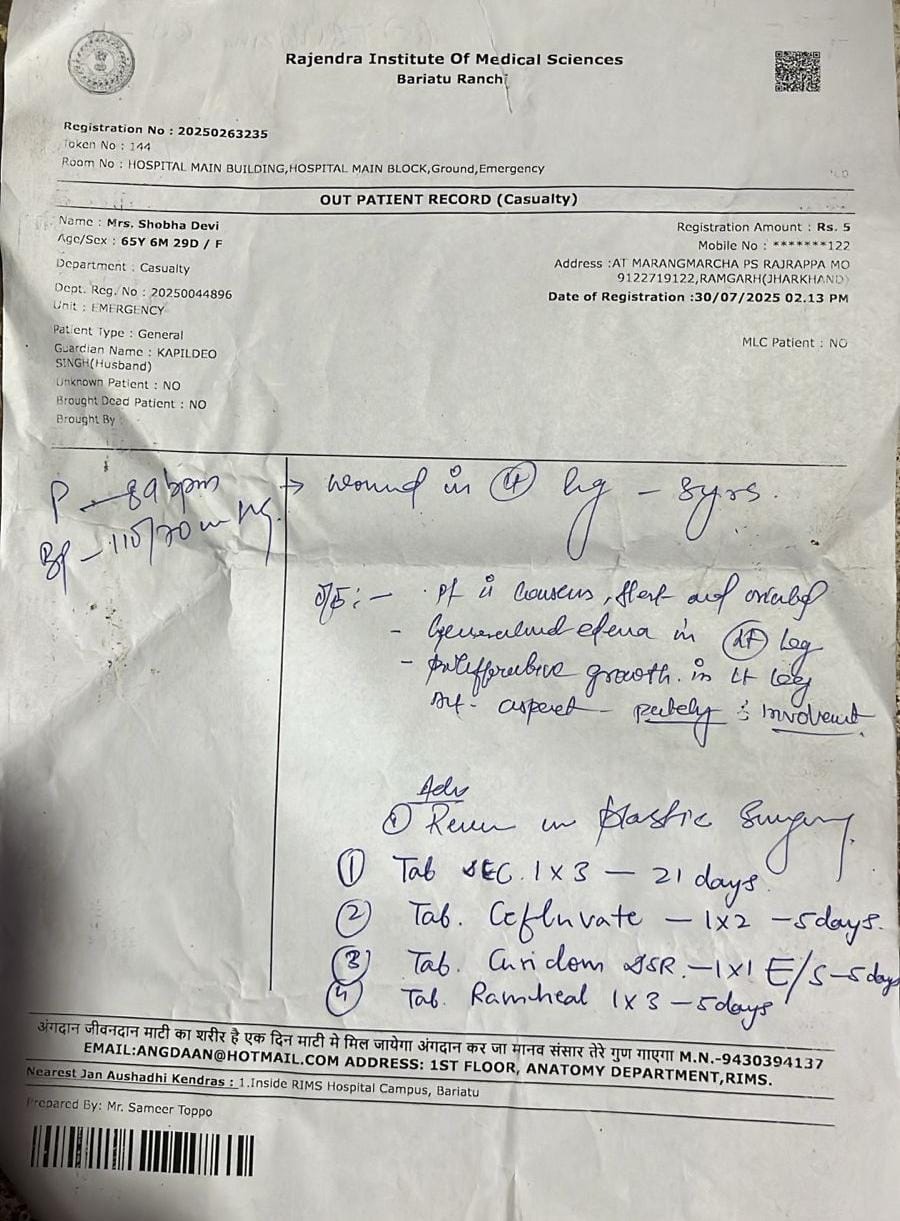 Rajendra Institute Of Medical Sciences
Bariatu Ranchi
Registration No : 20250263235
Token No : 144
Room No : HOSPITAL MAIN BUILDING,HOSPITAL MAIN BLOCK,Ground,Emergency
OUT PATIENT RECORD (Casualty)
Name : Mrs. Shobha Devi
Age/Sex : 65Y 6M 29D / F
Department : Casualty
Dept. Reg. No : 20250044896
Unit : EMERGENCY
Patient Type : General
Guardian Name : KAPILDEO
SINGH(Husband)
Unknown Patient : NO
Brought Dead Patient : NO
Brought By :
Registration Amount : Rs. 5
Mobile No : *******122
Address :AT MARANGMARCHA PS RAJRAPPA MO
9122719122,RAMGARH(JHARKHAND)
Date of Registration :30/07/2025 02.13 PM
MLC Patient : NO
P - 89 bpm
BP - 110/70 m Hg.
→ wound in leg - 8yrs.
O/E :- pt is , and
- in Leg
- growth in Lt leg
-
Adv
in Plastic Surgery
① Tab SEC. 1 x 3 - 21 days
② Tab. Cefluvate - 1x2 - 5days.
③ Tab. DSR. - 1x1 E/S - 5days
④ Tab. Ramheal 1x3 - 5days
अंगदान जीवनदान माटी का शरीर है एक दिन माटी मे मिल जायेगा अंगदान कर जा मानव संसार तेरे गुण गाएगा M.N.-9430394137
EMAIL:ANGDAAN@HOTMAIL.COM ADDRESS: 1ST FLOOR, ANATOMY DEPARTMENT,RIMS.
Nearest Jan Aushadhi Kendras : 1.Inside RIMS Hospital Campus, Bariatu
Prepared By: Mr. Sameer Toppo